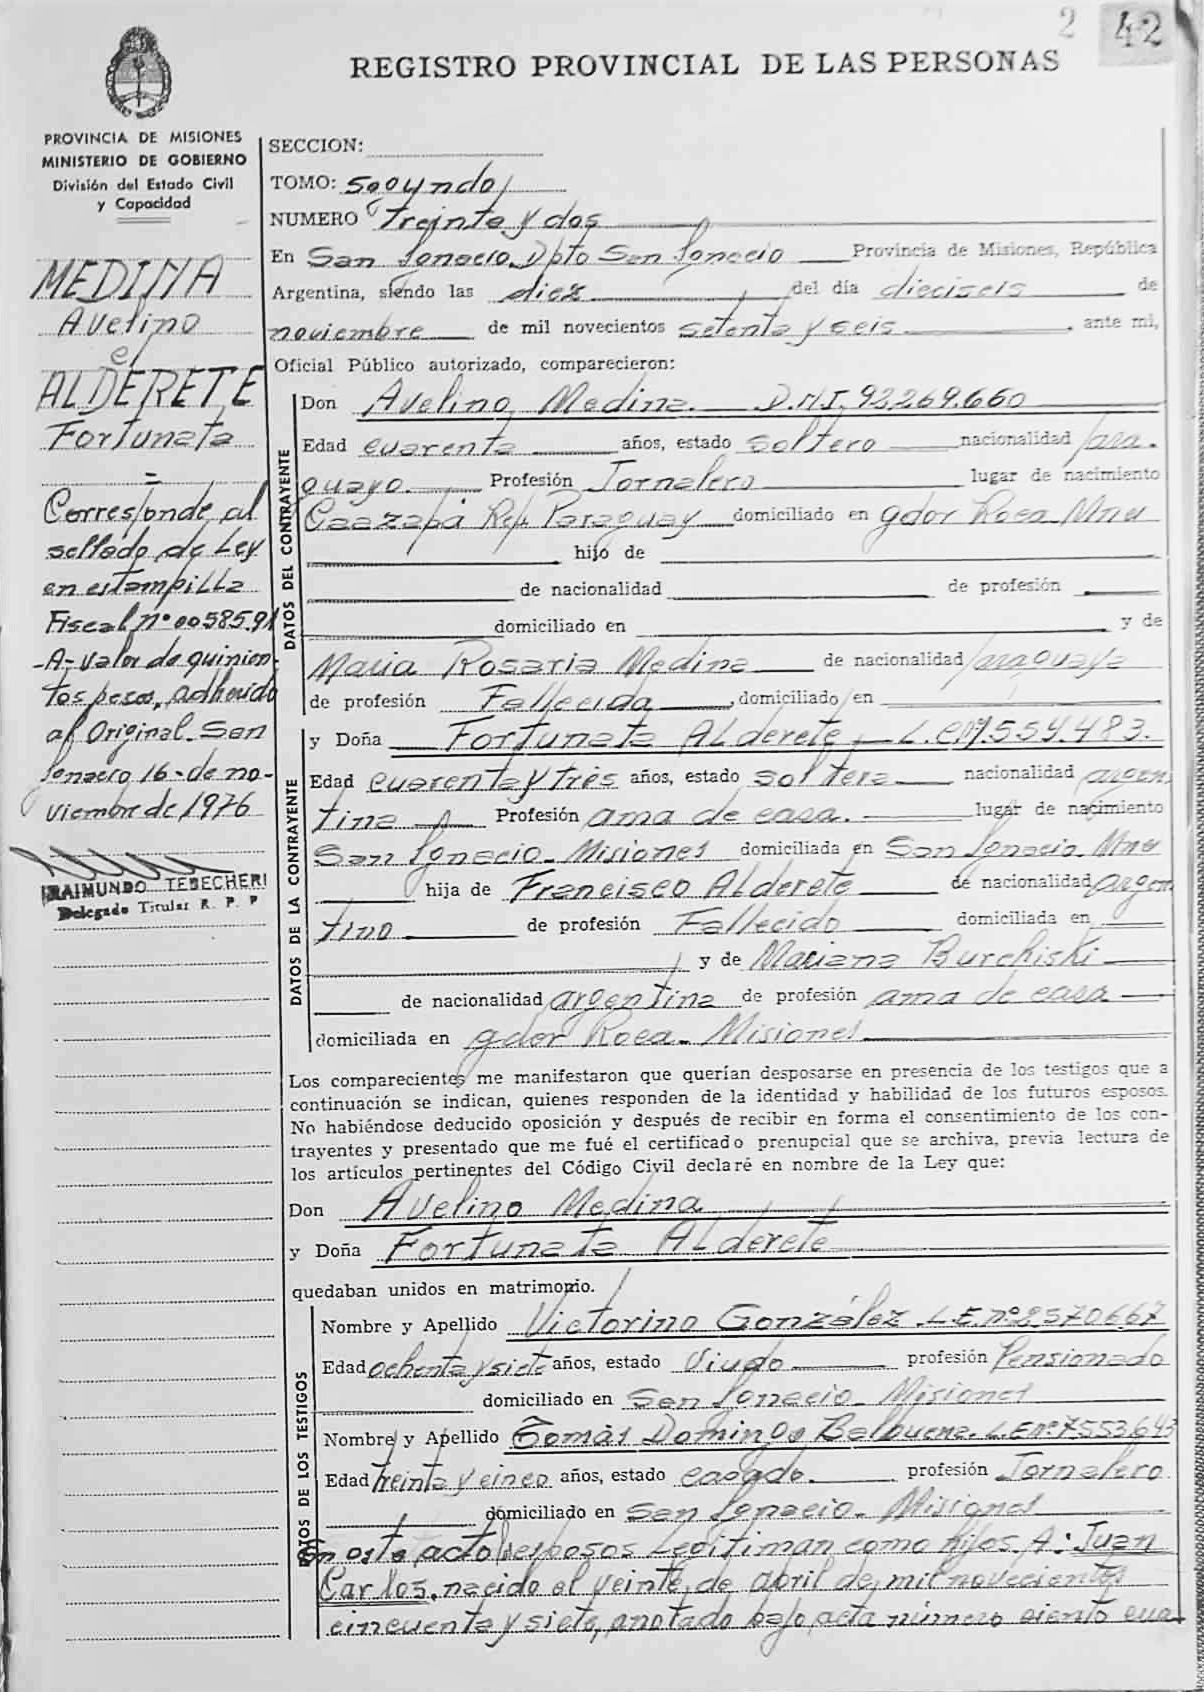 2 42
REGISTRO PROVINCIAL DE LAS PERSONAS
PROVINCIA DE MISIONES
MINISTERIO DE GOBIERNO
División del Estado Civil
y Capacidad
MEDINA
Avelino
c/
ALDERETE
Fortunata
=
Corresponde al
sellado de Ley
en estampilla
Fiscal nº 0058591
-A- valor de quinien-
tos pesos, adherido
al Original. San
Ignacio 16-de no-
viembre de 1976
RAIMUNDO TEBECHERI
Delegado Titular R. P. P
SECCION:
TOMO: Segundo
NUMERO treinta y dos
En San Ignacio, Dpto San Ignacio Provincia de Misiones, República
Argentina, siendo las diez del día dieciseis de
noviembre de mil novecientos setenta y seis, ante mi,
Oficial Público autorizado, comparecieron:
DATOS DEL CONTRAYENTE
Don Avelino Medina. D.N.I. 92.269.660
Edad cuarenta años, estado soltero nacionalidad para-
guayo. Profesión Jornalero lugar de nacimiento
Caazapá Rep. Paraguay domiciliado en gdor Roca Mnes
hijo de
de nacionalidad de profesión
domiciliado en y de
Maria Rosaria Medina de nacionalidad paraguaya
de profesión Fallecida, domiciliado en
DATOS DE LA CONTRAYENTE
y Doña Fortunata ALderete, L.C.
Edad cuarenta y tres años, estado soltera nacionalidad argen
tina Profesión ama de casa. lugar de nacimiento
San Ignacio- Misiones domiciliada en San Ignacio. Mnes
hija de Francisco ALderete de nacionalidad argen
tino de profesión Fallecido domiciliada en
y de Mariana Burchiski
de nacionalidad argentina de profesión ama de casa
domiciliada en gdor Roca- Misiones
Los comparecientes me manifestaron que querían desposarse en presencia de los testigos que a
continuación se indican, quienes responden de la identidad y habilidad de los futuros esposos.
No habiéndose deducido oposición y después de recibir en forma el consentimiento de los con-
trayentes y presentado que me fué el certificado prenupcial que se archiva, previa lectura de
los artículos pertinentes del Código Civil declaré en nombre de la Ley que:
Don Avelino Medina
y Doña Fortunata ALderete
quedaban unidos en matrimonio.
DATOS DE LOS TESTIGOS
Nombre y Apellido Victorino González. L.E. nº 2570667
Edad ochenta y siete años, estado Viudo profesión Pensionado
domiciliado en San Ignacio- Misiones
Nombre y Apellido Tomás Domingo Balbuena. L.E nº 7553643
Edad treinta y cinco años, estado casado. profesión Jornalero
domiciliado en San Ignacio- Misiones
En este acto esposos Legitiman como hijos A: Juan
Carlos, nacido el veinte de abril de mil novecientos
cincuenta y siete, anotado bajo acta número ciento cua-